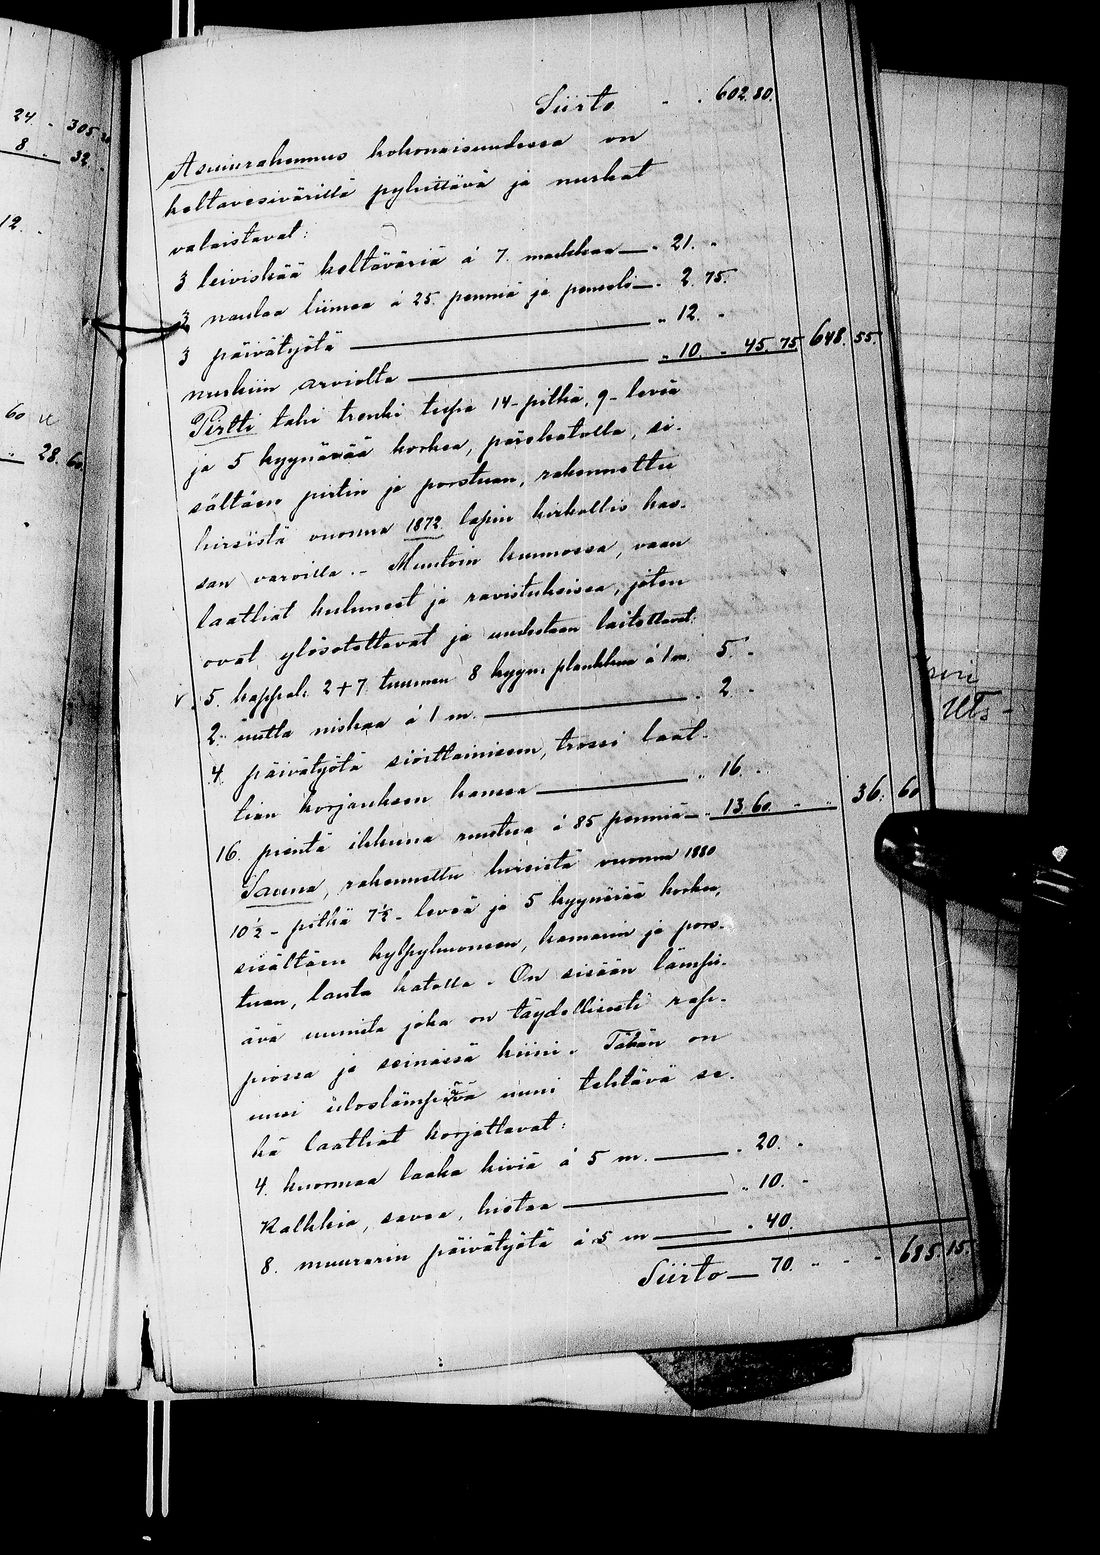 24. - 305.20
8 - 32.
12.
60
28.60.
Siirto - - 602.80.
Asuinrakennus kokonaisuudessa on
keltavesivärillä pyhittävä ja nurkat
valaistavat:
3 leiviskää keltäväriä á 7. markkaa — „ 21. „
3 naulaa liimaa á 25. penniä ja penseli — „ 2.75.
3 päivätyötä — „ 12. „
nurkiin arviolta — „ 10. „ 45.75 648.55.
Pirtti tahi trenki tupa 14-pitkä, 9-leveä
ja 5 kyynärää korkea, pärekatolla, si-
sältäen pirtin ja porstuan, rakennettu
hirsistä vuonna 1872 lapin kirkollis kas-
san varoilla. - Muutoin kunnossa, vaan
laattiat kuluneet ja ravistuksissa, joten
ovat ylösotettavat ja uudestaan laitettavat:
v. 5. kappal: 2+7 tuuman 8 kyyn: plankkua á 1 m. 5. „
2. uutta niskaa á 1 m. — „ 2. „
4. päivätyötä sioittamiseen, trossi laat-
tian korjauksen kanssa — „ 16. „
16. pientä ikkuna ruutua á 85 penniä — „ 13.60. „ — „ 36.60
Sauna, rakennettu hirsistä vuonna 1880
10½ - pitkä 7½ - leveä ja 5 kyynärää korkea,
sisältäen kylpyhuoneen, kamarin ja pors-
tuan, lauta katolla. On sisään lämpii-
ävä uunita joka on täydellisesti rap-
piossa ja seinässä kiini. Tähän on
uusi uloslämpiävä uuni tehtävä se-
kä laattiat korjattavat:
4. kuormaa laaka kiviä á 5 m. — „ 20. „
Kalkkia, savea, hietaa — „ 10. „
8. muurarin päivätyötä á 5 m — „ 40.
Siirto — 70. „ - - „ 685.15.